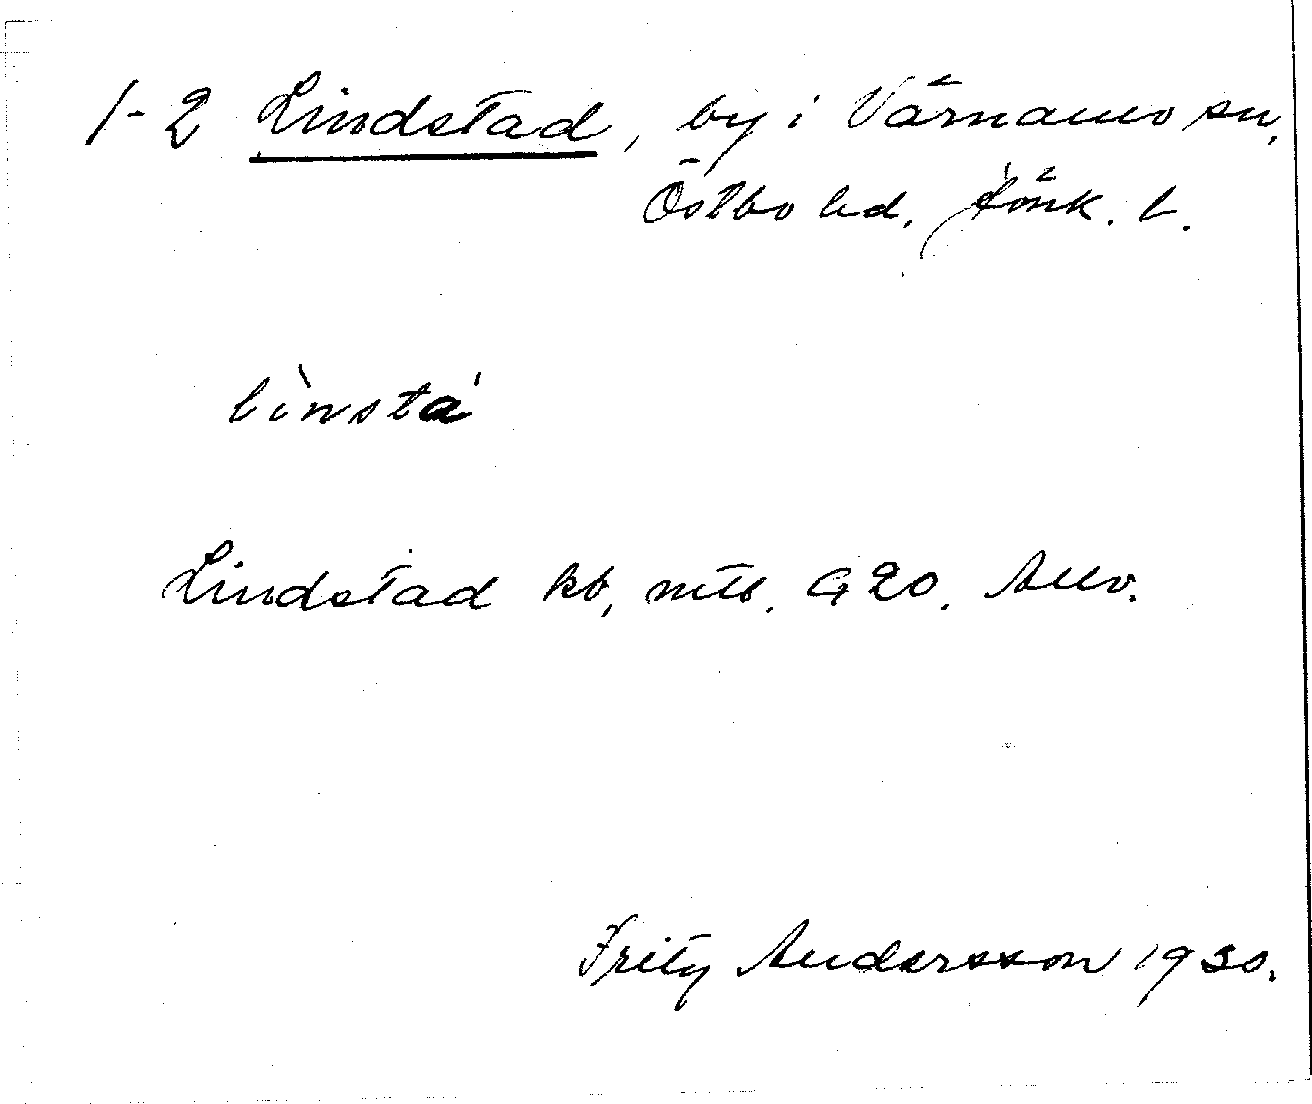 1-2 Lindstad, by i Värnamo sn.
Östbo hd. Jönk. l.
lìnstá
Lindstad kb, mtb. G20. Allv.
Fritz Andersson 1930.